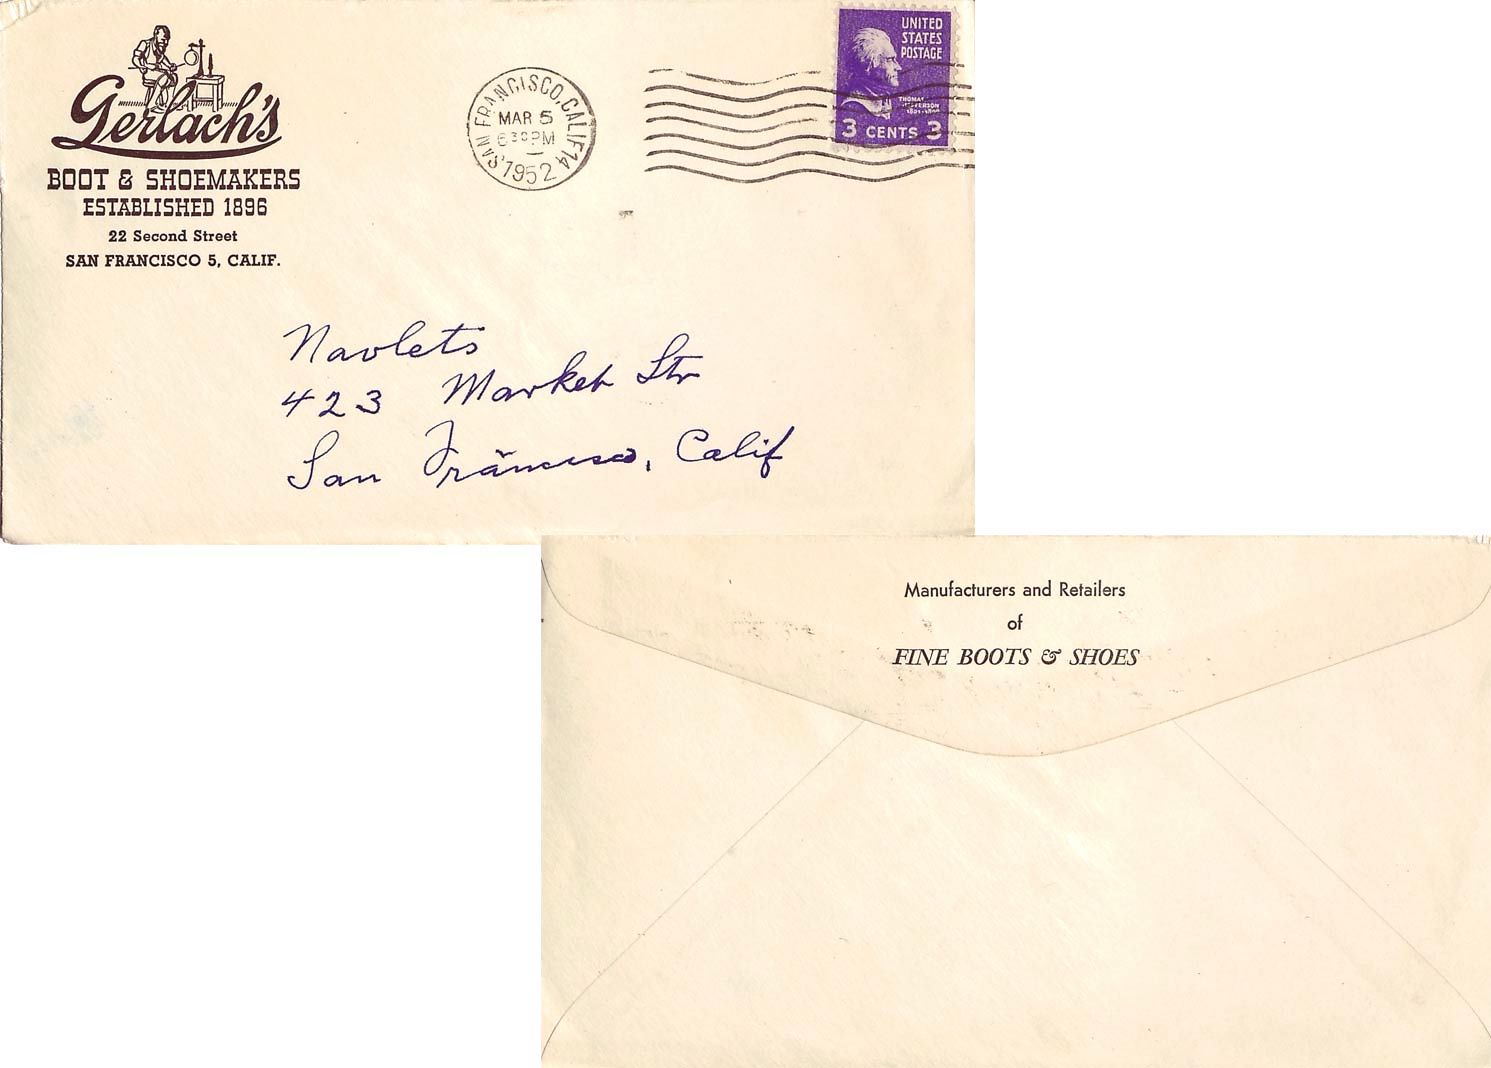 Gerlach's
BOOT & SHOEMAKERS
ESTABLISHED 1896
22 Second Street
SAN FRANCISCO 5, CALIF.
SAN FRANCISCO, CALIF. 14
MAR 5
6 30 PM
1952
UNITED
STATES
POSTAGE
THOMAS
JEFFERSON
3 CENTS 3
Navlets
423 Market Str
San Francisco, Calif
Manufacturers and Retailers
of
FINE BOOTS & SHOES